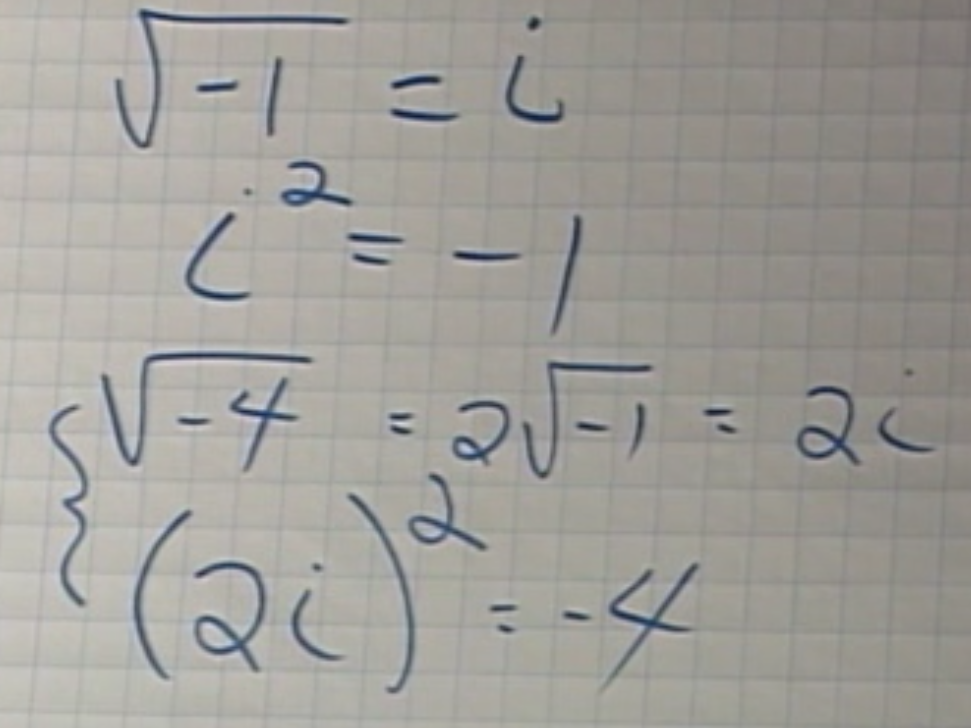 √-1 = i
i² = -1
√-4 = 2√-1 = 2i
(2i)² = -4